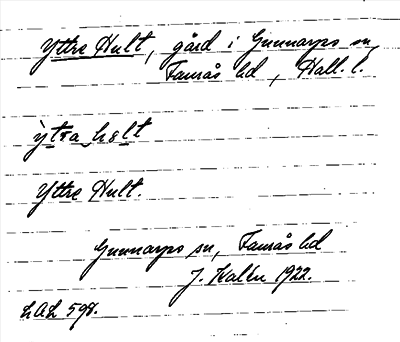 Yttre Hult, gård i Gunnarps sn,
Faurås hd, Hall. l.
ỳtra hølt
Yttre Hult.
Gunnarps sn, Faurås hd
J. Kalén 1922.
LAL 598.